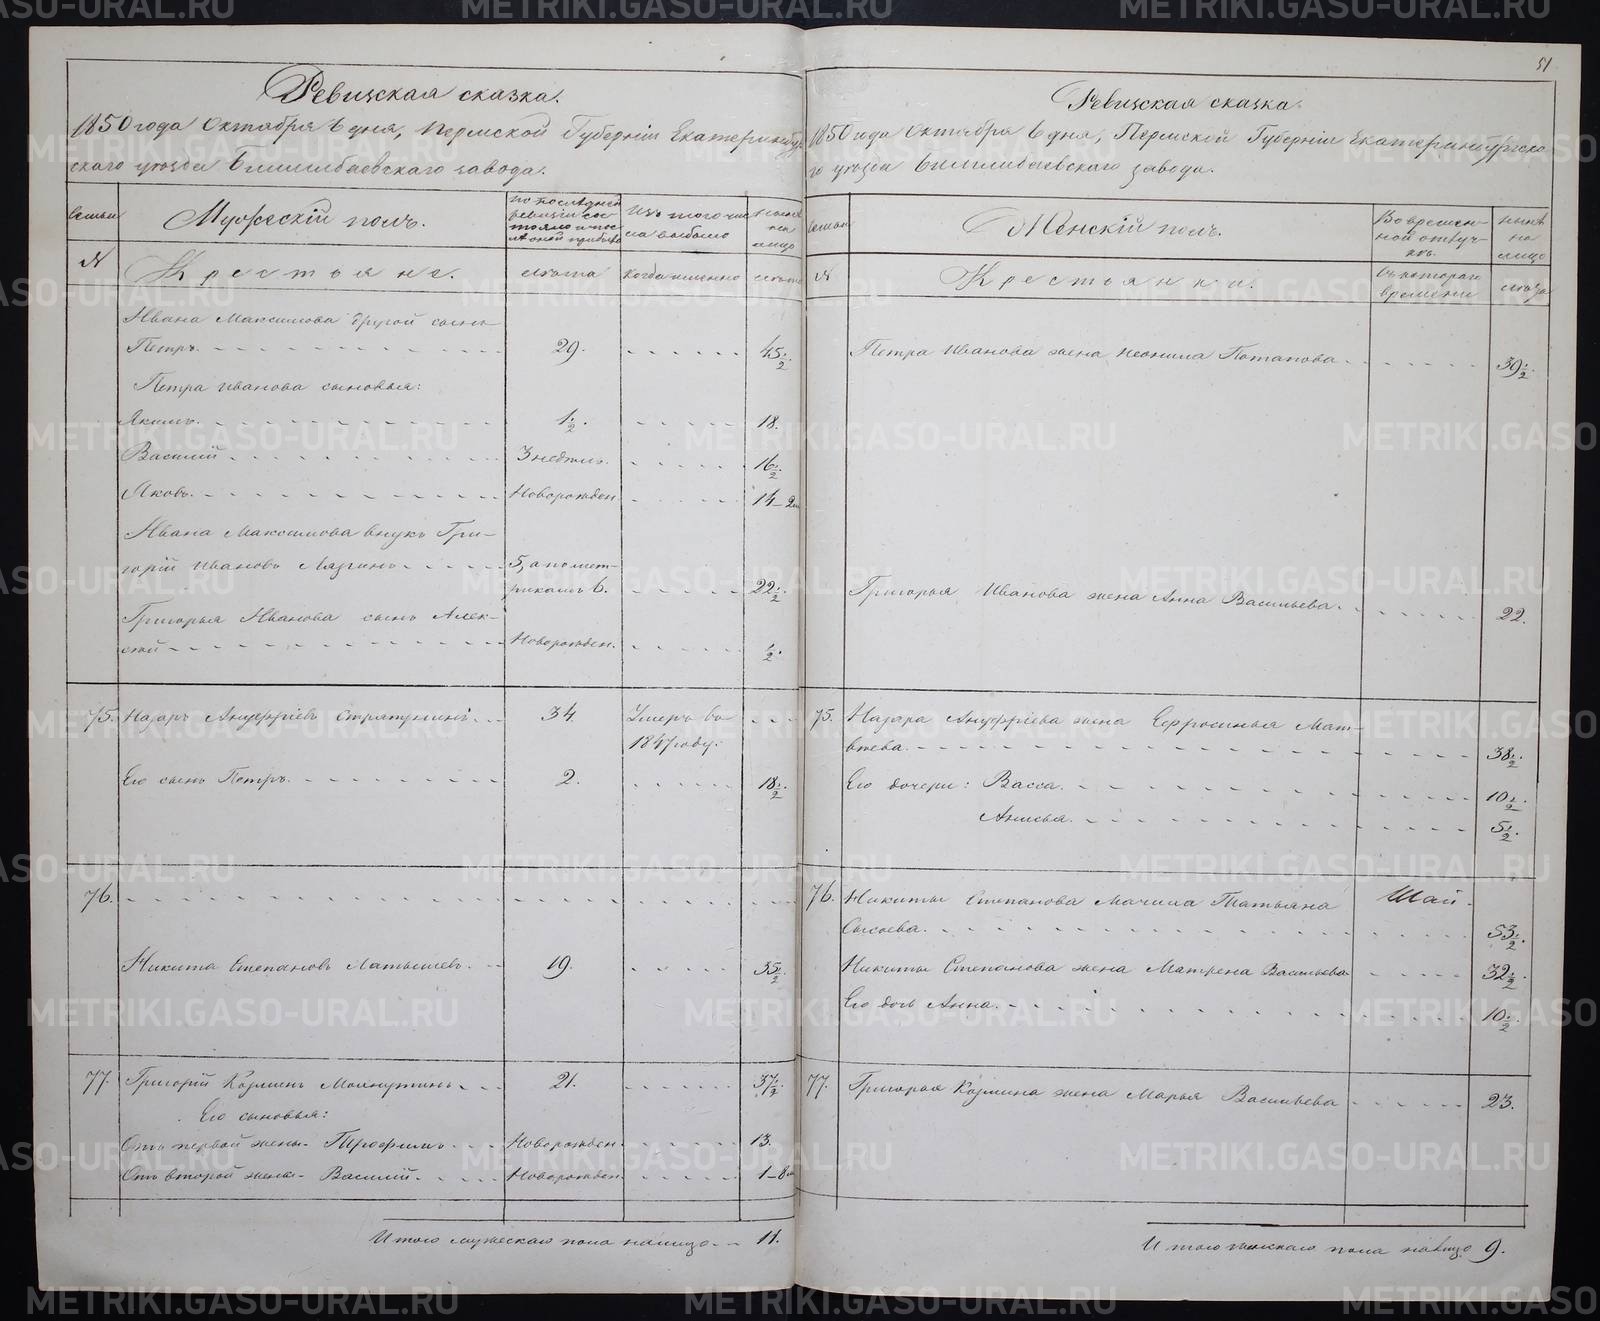 51
Ревизская сказка.
1850 года Октября 6 дня, Пермской Губернiи Екатеринбург-
скаго уѣзда Билимбаевскаго завода.
Семьи
Мужескiй полъ.
По послѣдней
ревизiи сос-
тояло и пос-
лѣ оной прибыло
Изъ того чис-
ла выбыло
Нынѣ
на
лицо
№
Крестьяне.
лѣта
когда именно
лѣта
Ивана Максимова другой сынъ
Петръ. 29. 45 1/2
Петра Иванова сыновья:
Якимъ. 1 1/2. 18.
Василiй 3 недѣль. 16 1/2.
Яковъ. Новорожден. 14-2м
Ивана Максимова внукъ Гри-
горiй Ивановъ 5, а по мет-
рикамъ 6. 22 1/2.
Григорья Иванова сынъ Алек-
сѣй Новорожден. 1/2.
75. Назаръ Ануфрiевъ 34. Умеръ въ
1847 году.
Его сынъ Петръ. 2. 18 1/2.
76.
Никита Степановъ Латышевъ. 19. 35 1/2.
77. Григорiй Козминъ 21. 37 1/2.
Его сыновья:
Отъ первой жены Трофимъ Новорожден. 13.
Отъ второй жены Василiй. Новорожден. 1-8м
Итого мужескаго пола налицо 11.
Ревизская сказка.
1850 года Октября 6 дня, Пермской Губернiи Екатеринбургска-
го уѣзда Билимбаевскаго завода.
Семьи
Женскiй полъ.
Во времен-
ной отлуч-
кѣ.
Нынѣ
на
лицо
№
Крестьянки.
Съ котораго
времени
лѣта
Петра Иванова жена Неонила Потапова. 39 1/2.
Григорья Иванова жена Анна Васильева. 22.
75. Назара Ануфрiева жена Ефросинья Мат-
вѣева. 38 1/2.
Его дочери: Васса. 10 1/2.
Анисья. 5 1/2.
76. Никиты Степанова мачиха Татьяна
Сысоева. 53 1/2.
Никиты Степанова жена Матрена Васильева 32 1/2
Его дочь Анна. 10 1/2.
77. Григорья Козмина жена Марья Васильева 23.
Итого женскаго пола налицо 9.
METRIKI.GASO-URAL.RU